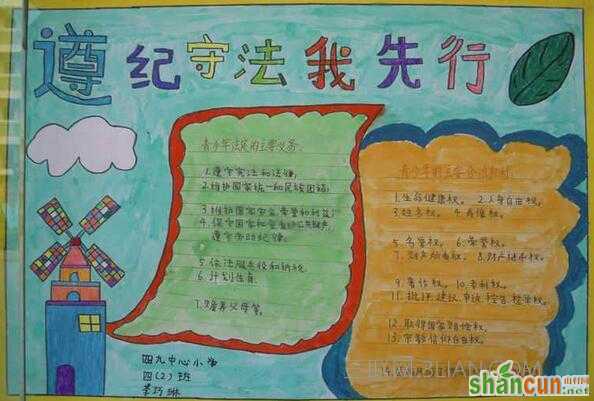 遵纪守法我先行
青少年法定的主要义务
1.遵守宪法和法律,
2.维护国家统一和民族团结
3.维护国家安全荣誉和利益
4.保守国家秘密
遵守劳动纪律
5.依法服兵役和纳税
6.计划生育
7.赡养父母等。
青少年的主要
1.生命健康权。 2.人身自由权。
3.姓名权。 4.肖像权。
5.名誉权。 6.荣誉权。
7.财产所有权。 8.财产继承权。
9.著作权。 10.专利权。
11.批评 建议 申诉 控告 检举权。
12.取得国家赔偿权。
13.宗教信仰自由权。
14.
四九中心小学
四(2)班
shancun
.net